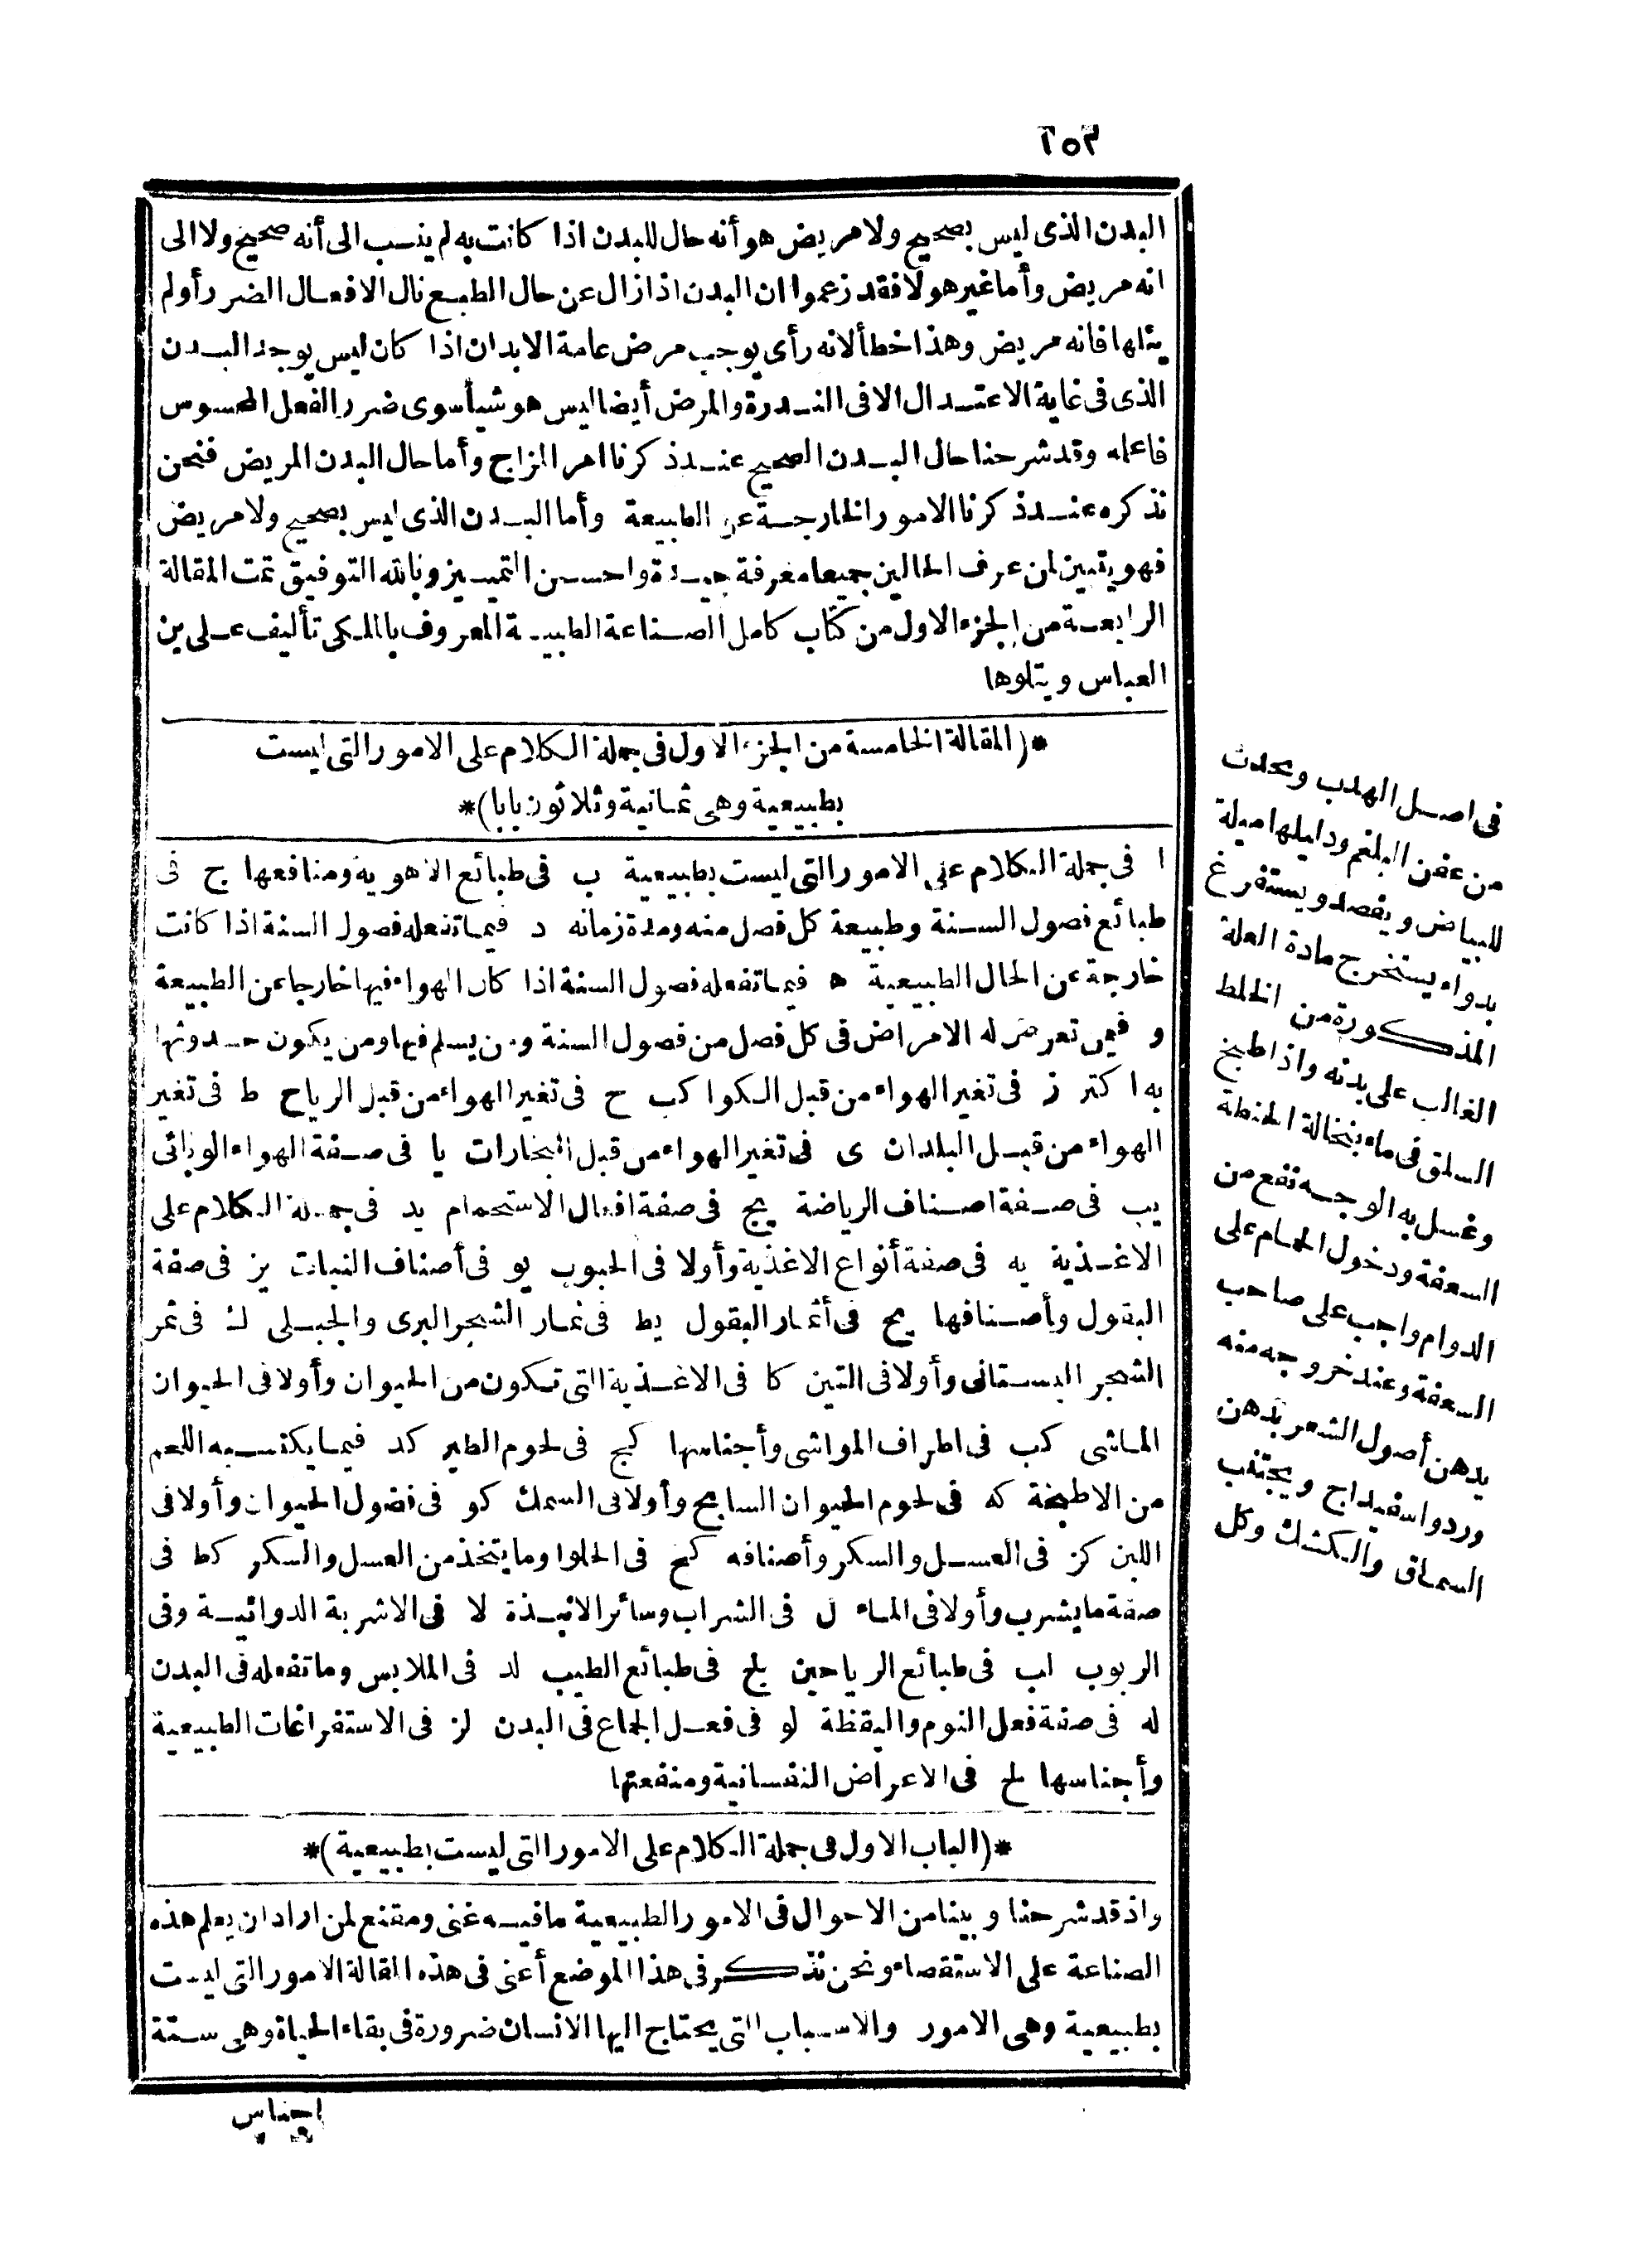 ١٥٢
البدن الذى ليس بصحيح ولا مريض هو أنه حال للبدن اذا كانت به لم ينسب الى أنه صحيح ولا الى
انه مريض وأما غير هولا فقد زعموا ان البدن اذا زال عن حال الطبع نال الافعال الضرر أولم
ينلها فانه مريض وهذا خطأ لانه رأى يوجب مرض عامة الابدان اذا كان ليس يوجد البدن
الذى فى غاية الاعتدال الا فى الندرة والمرض أيضا ليس هو شيأ سوى ضرر الفعل المحسوس
فاعلمه وقد شرحنا حال البدن الصحيح عند ذكرنا امر المزاج وأما حال البدن المريض فنحن
نذكره عند ذكرنا الامور الخارجة عن الطبيعة وأما البدن الذى ليس بصحيح ولا مريض
فهو يتبين لمن عرف الحالين جميعا معرفة جيدة واحسن التمييز وبالله التوفيق تمت المقالة
الرابعة من الجزء الاول من كتاب كامل الصناعة الطبية المعروف بالملكى تأليف على بن
العباس ويتلوها
*(المقالة الخامسة من الجزء الاول فى جملة الكلام على الامور التى ليست
بطبيعية وهى ثمانية وثلاثون بابا)*
ا فى جملة الكلام على الامور التى ليست بطبيعية ب فى طبائع الاهوية ومنافعها ج فى
طبائع فصول السنة وطبيعة كل فصل منه ومدة زمانه د فيما تفعله فصول السنة اذا كانت
خارجة عن الحال الطبيعية ه فيما تفعله فصول السنة اذا كان الهواء فيها خارجا عن الطبيعة
و فيمن تعرض له الامراض فى كل فصل من فصول السنة ومن يسلم فيها ومن يكون حدوثها
به اكثر ز فى تغير الهواء من قبل الكواكب ح فى تغير الهواء من قبل الرياح ط فى تغير
الهواء من قبل البلدان ى فى تغير الهواء من قبل البخارات يا فى صفة الهواء الوبائى
يب فى صفة اصناف الرياضة يج فى صفة افعال الاستحمام يد فى جملة الكلام على
الاغذية يه فى صفة أنواع الاغذية وأولا فى الحبوب يو فى أصناف النبات يز فى صفة
البقول وأصنافها يح فى أثمار البقول يط فى ثمار الشجر البرى والجبلى ك فى ثمر
الشجر البستانى وأولا فى التين كا فى الاغذية التى تكون من الحيوان وأولا فى الحيوان
الماشى كب فى اطراف المواشى وأجناسها كج فى لحوم الطير كد فيما يكتسبه اللحم
من الاطبخة كه فى لحوم الحيوان السابح وأولا فى السمك كو فى فضول الحيوان وأولا فى
اللبن كز فى العسل والسكر وأصنافه كح فى الحلوا وما يتخذ من العسل والسكر كط فى
صفة ما يشرب وأولا فى الماء ل فى الشراب وسائر الانبذة لا فى الاشربة الدوائية وفى
الربوب لب فى طبائع الرياحين لج فى طبائع الطيب لد فى الملابس وما تفعله فى البدن
له فى صفة فعل النوم واليقظة لو فى فعل الجماع فى البدن لز فى الاستفراغات الطبيعية
وأجناسها لح فى الاعراض النفسانية ومنفعتها
*(الباب الاول فى جملة الكلام على الامور التى ليست بطبيعية)*
واذ قد شرحنا وبينا من الاحوال فى الامور الطبيعية ما فيه غنى ومقنع لمن اراد ان يعلم هذه
الصناعة على الاستقصاء ونحن نذكر فى هذا الموضع أعنى فى هذه المقالة الامور التى ليست
بطبيعية وهى الامور والاسباب التى يحتاج اليها الانسان ضرورة فى بقاء الحياة وهى ستة
اجناس
فى اصل الهدب ويحدث
من عفن البلغم ودليلها ميلة
للبياض ويفصد ويستفرغ
بدواء يستخرج مادة العلة
المذكورة من الخلط
الغالب على بدنه واذا طبخ
السلق فى ماء بنخالة الحنطة
وغسل به الوجه نفع من
السعفة ودخول الحمام على
الدوام واجب على صاحب
السعفة وعند خروجه منه
يدهن أصول الشعر بدهن
ورد واسفيداج ويجتنب
السماق والكشك وكل